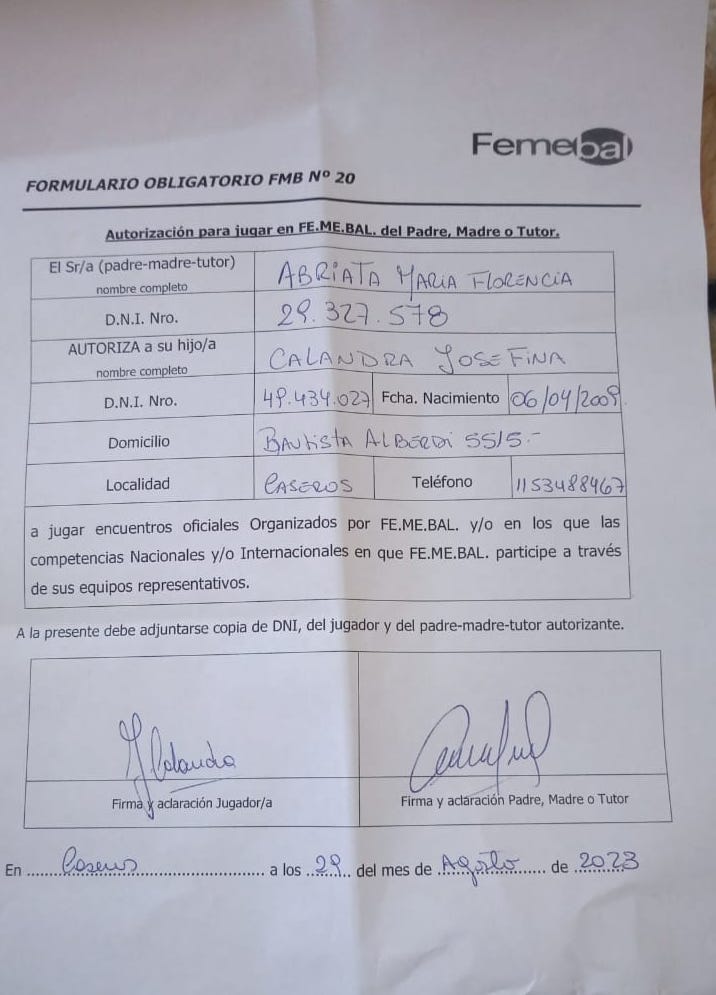 Femebal
FORMULARIO OBLIGATORIO FMB Nº 20
Autorización para jugar en FE.ME.BAL. del Padre, Madre o Tutor.
El Sr/a (padre-madre-tutor) nombre completo ABRIATA MARIA FLORENCIA
D.N.I. Nro. 29.327.578
AUTORIZA a su hijo/a nombre completo CALANDRA JOSEFINA
D.N.I. Nro. 49.434.027 Fcha. Nacimiento 06/04/2009
Domicilio BAUTISTA ALBERDI 5515.-
Localidad CASEROS Teléfono 1153488467
a jugar encuentros oficiales Organizados por FE.ME.BAL. y/o en los que las
competencias Nacionales y/o Internacionales en que FE.ME.BAL. participe a través
de sus equipos representativos.
A la presente debe adjuntarse copia de DNI, del jugador y del padre-madre-tutor autorizante.
J Calandra
Firma y aclaración Jugador/a Firma y aclaración Padre, Madre o Tutor
En Caseros a los 29 del mes de Agosto de 2023